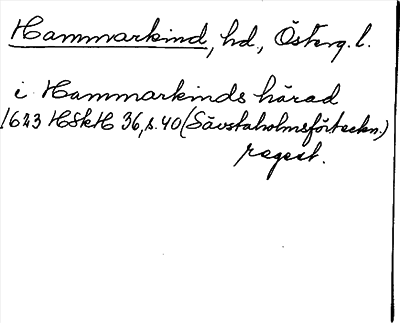 Hammarkind, hd, Österg. l.
i Hammarkinds härad
1643 HSkH 36, s. 40 (Sävstaholmsförteckn.)
regest.